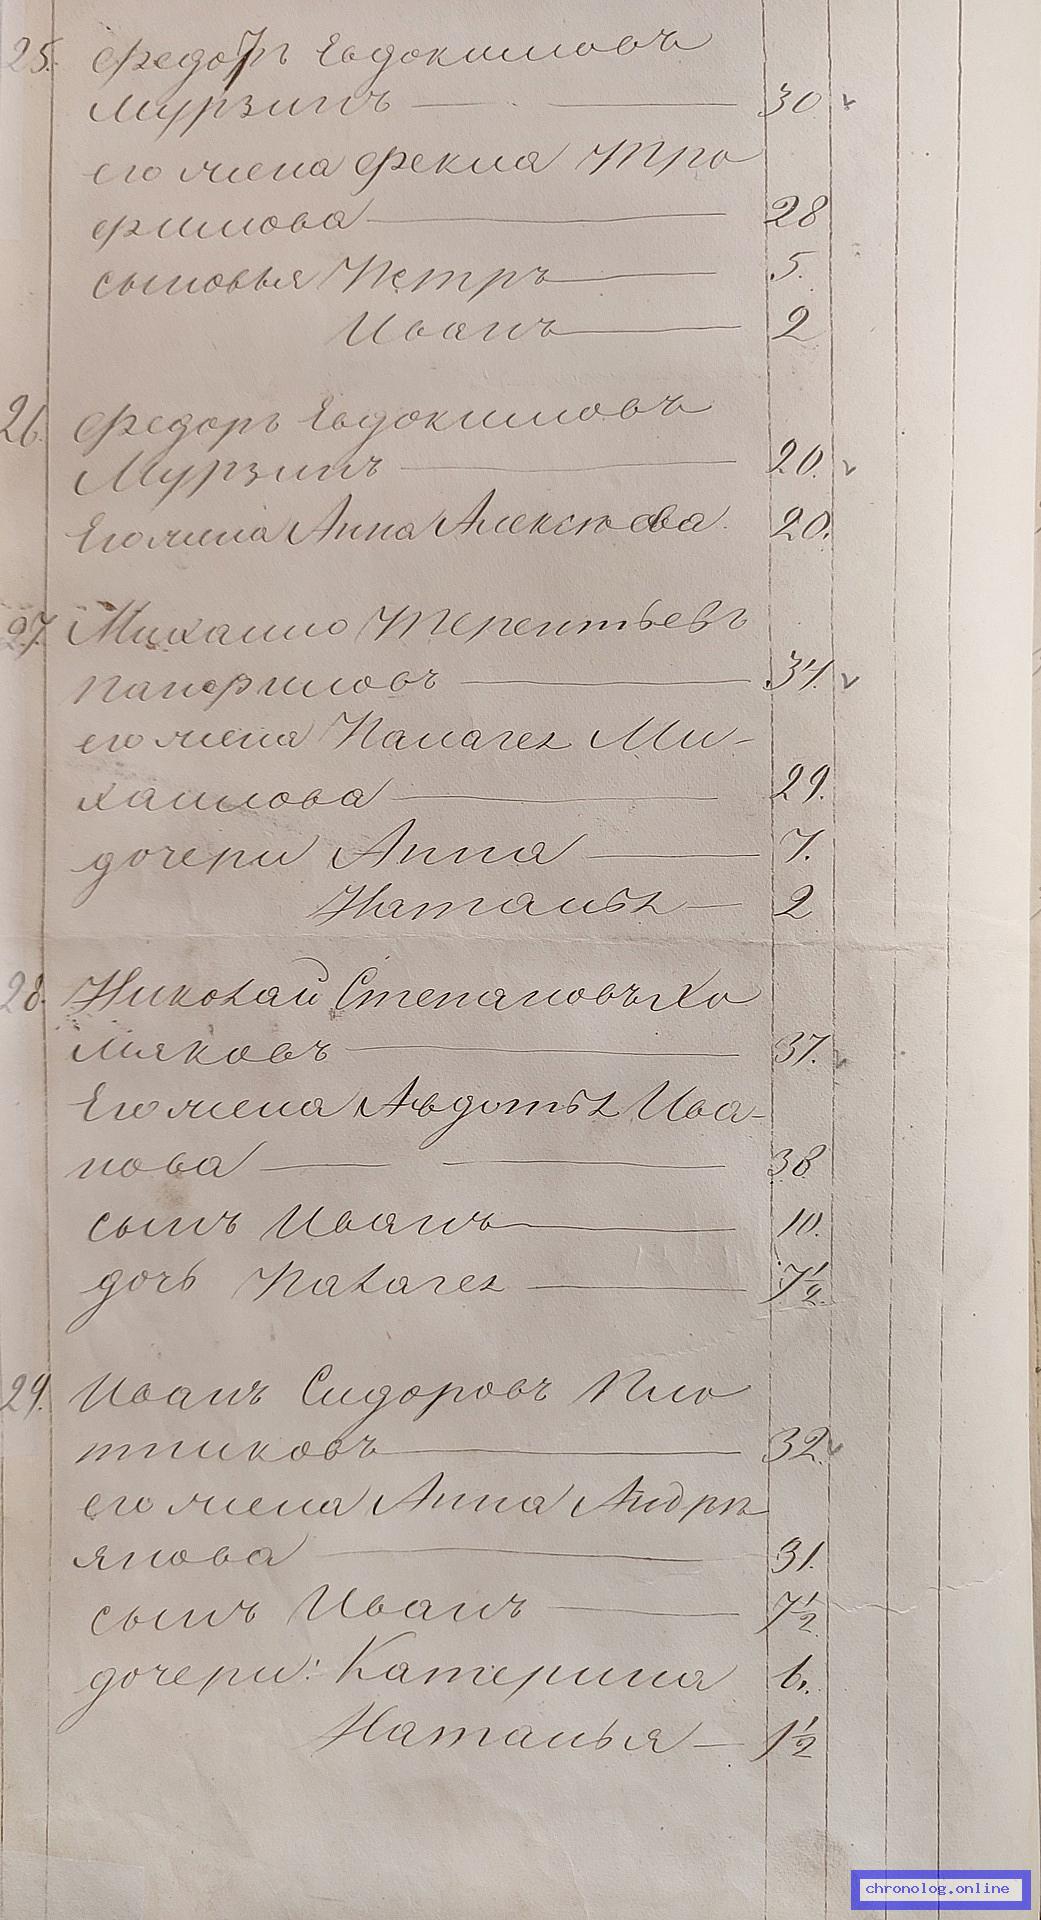 25. Федоръ Евдокимовъ
Мурзинъ 30
его жена Фекла Тро
фимова 28
сыновья Петръ 5.
Иванъ 2
26. Федоръ Евдокимовъ
Мурзинъ 20.
Его жена Анна Алексѣева 20.
27. Михаило Терентьевъ
Панфиловъ 34.
его жена Палагея Ми-
хаилова 29.
дочери Анна 7.
Наталья 2
28. Николай Степановъ Хо
мяковъ 37.
Его жена Авдотья Ива-
нова 38
сынъ Иванъ 10.
дочь Палагея 7½
29. Иванъ Сидоровъ Пло
тниковъ 32.
его жена Анна Андрі
янова 31.
сынъ Иванъ 7½
дочери: Катерина 6.
Наталья 1½
chronolog.online